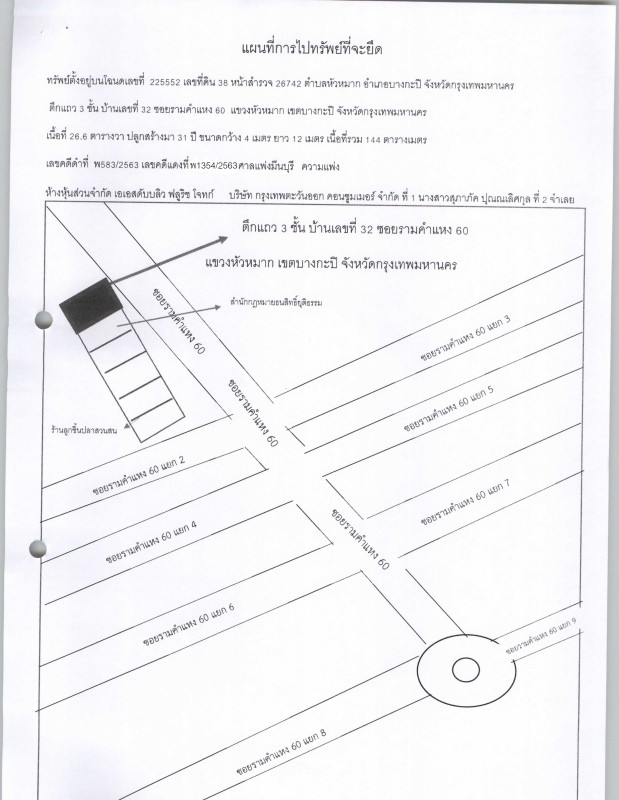 แผนที่การไปทรัพย์ที่จะยึด
ทรัพย์ตั้งอยู่บนโฉนดเลขที่ 225552 เลขที่ดิน 38 หน้าสำรวจ 26742 ตำบลหัวหมาก อำเภอบางกะปิ จังหวัดกรุงเทพมหานคร
ตึกแถว 3 ชั้น บ้านเลขที่ 32 ซอยรามคำแหง 60 แขวงหัวหมาก เขตบางกะปิ จังหวัดกรุงเทพมหานคร
เนื้อที่ 26.6 ตารางวา ปลูกสร้างมา 31 ปี ขนาดกว้าง 4 เมตร ยาว 12 เมตร เนื้อที่รวม 144 ตารางเมตร
เลขคดีดำที่ พ583/2563 เลขคดีแดงที่พ1354/2563ศาลแพ่งมีนบุรี ความแพ่ง
ห้างหุ้นส่วนจำกัด เอเอสดับบลิว ฟลูริช โจทก์ บริษัท กรุงเทพตะวันออก คอนซูมเมอร์ จำกัด ที่ 1 นางสาวสุภาภัค ปุณณเลิศกุล ที่ 2 จำเลย
ตึกแถว 3 ชั้น บ้านเลขที่ 32 ซอยรามคำแหง 60
แขวงหัวหมาก เขตบางกะปิ จังหวัดกรุงเทพมหานคร
สำนักกฎหมายธนสิทธิ์ยุติธรรม
ซอยรามคำแหง 60
ซอยรามคำแหง 60 แยก 3
ซอยรามคำแหง 60
ซอยรามคำแหง 60 แยก 5
ร้านลูกชิ้นปลาสวนสน
ซอยรามคำแหง 60 แยก 2
ซอยรามคำแหง 60 แยก 7
ซอยรามคำแหง 60 แยก 4
ซอยรามคำแหง 60
ซอยรามคำแหง 60 แยก 6
ซอยรามคำแหง 60 แยก 9
ซอยรามคำแหง 60 แยก 8